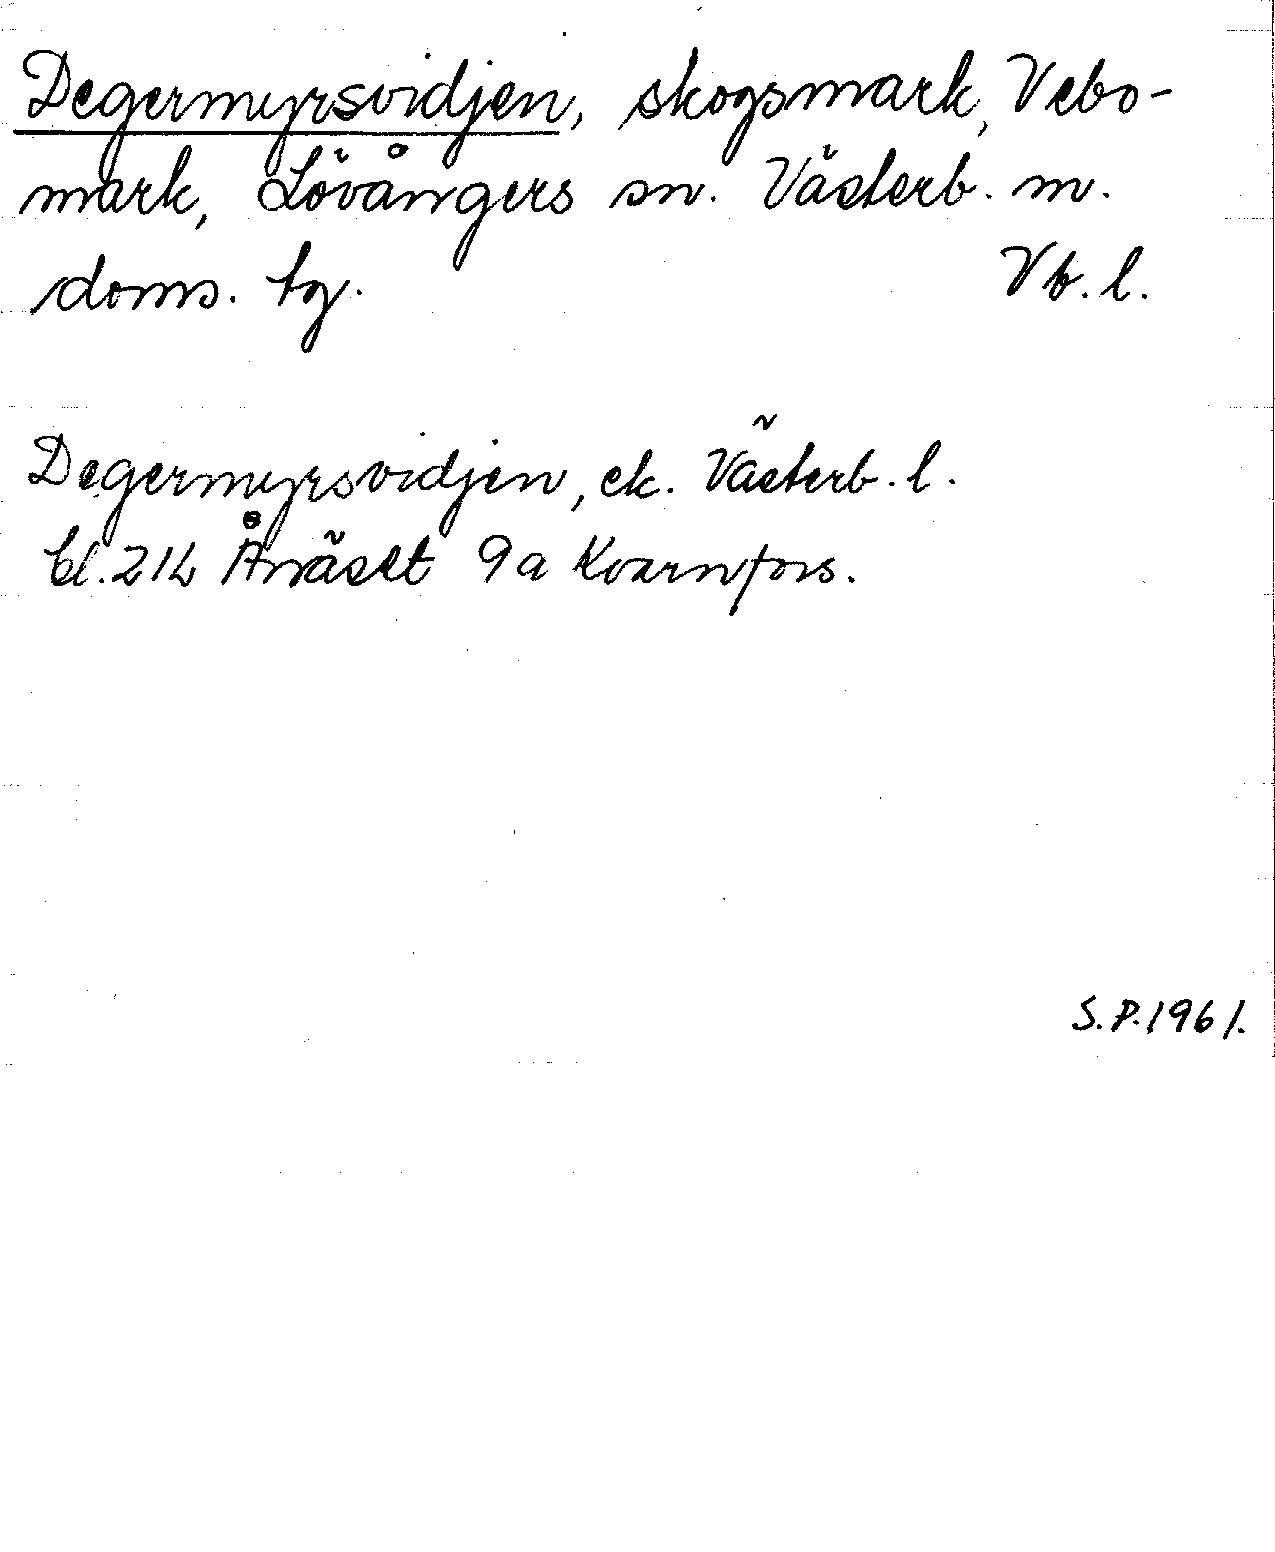 Degermyrsvidjen, skogsmark, Vebo-
mark, Lövångers sn. Västerb. m.
doms. tg. Vb. l.
Degermyrsvidjen, ek. Västerb. l.
bl. 21L Ånäset 9a Kvarnfors.
S.P. 1961.